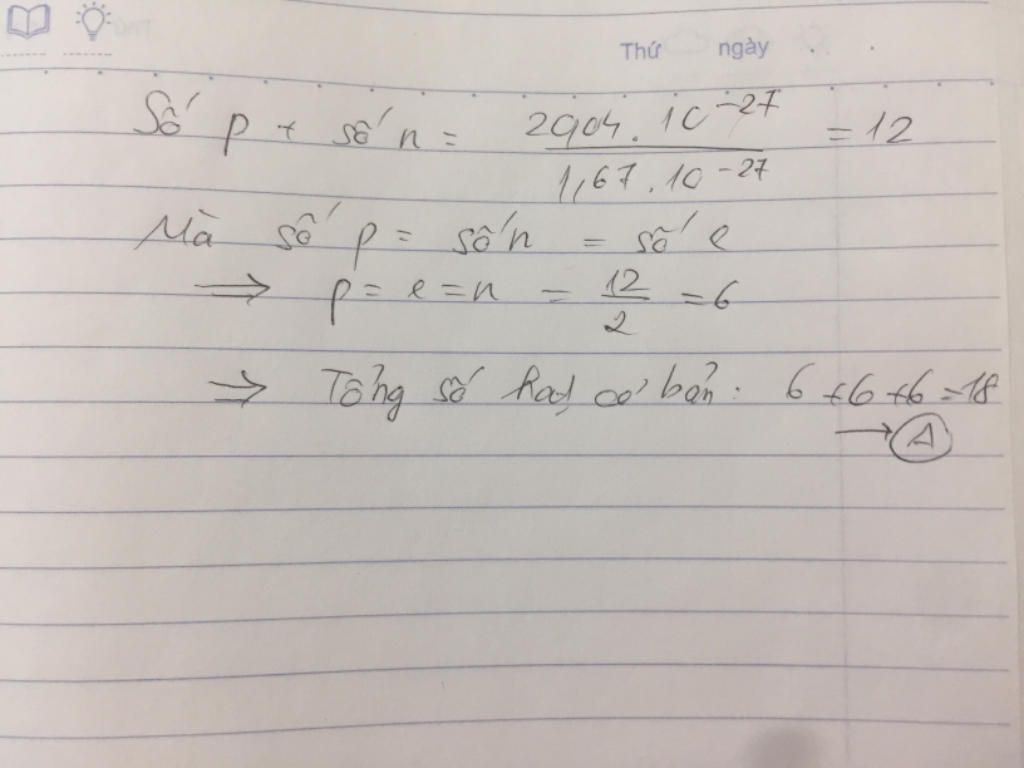 Thứ ngày
Số p + số n = 2904 . 10^-27 / 1,67 . 10^-27 = 12
Mà số p = số n = số e
⇒ p = e = n = 12/2 = 6
⇒ Tổng số hạt cơ bản : 6 + 6 + 6 = 18
→ A